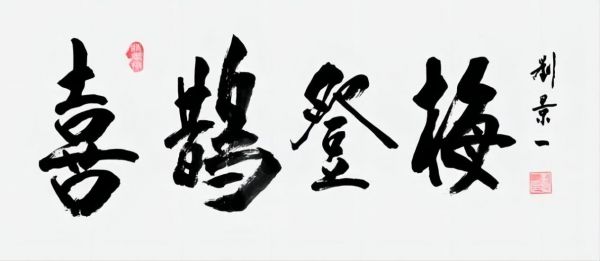 喜鹊登梅
刘景一